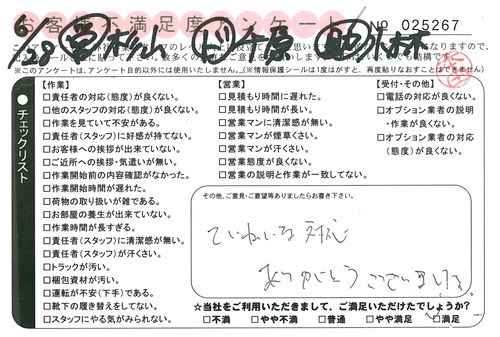 お客様不満足度アンケート
No 025267
6/28 営 杉山 ド 千房 助 林
※このアンケートは、アンケート目的以外には使用いたしません。(※情報保護シールは1度はがすと、再度貼りなおすことはできません)
チェックリスト
【作業】
□責任者の対応(態度)が良くない。
□他のスタッフの対応(態度)が良くない。
□作業を見ていて不安がある。
□責任者(スタッフ)に好感が持てない。
□お客様への挨拶が出来ていない。
□ご近所への挨拶・気遣いが無い。
□作業開始前の内容確認がなかった。
□作業開始時間が遅れた。
□荷物の取り扱いが雑である。
□お部屋の養生が出来ていない。
□作業時間が長すぎる。
□責任者(スタッフ)に清潔感が無い。
□責任者(スタッフ)が汗くさい。
□トラックが汚い。
□梱包資材が汚い。
□運転が不安(下手)である。
□靴下の履き替えをしてない。
□スタッフにやる気がみられない。
【営業】
□見積もり時間に遅れた。
□見積もり時間が長い。
□営業マンに清潔感が無い。
□営業マンが煙草くさい。
□営業マンが汗くさい。
□営業態度が良くない。
□営業の説明と作業が一致してない。
【受付・その他】
□電話の対応が良くない。
□オプション業者の説明
・作業が良くない。
□オプション業者の対応
(態度)が良くない。
その他、ご意見・ご要望等ありましたらお書き下さい。
ていねいな対応
ありがとうございました。
☆当社をご利用いただきまして、ご満足いただけたでしょうか?
□不満 □やや不満 □普通 □やや満足 □満足